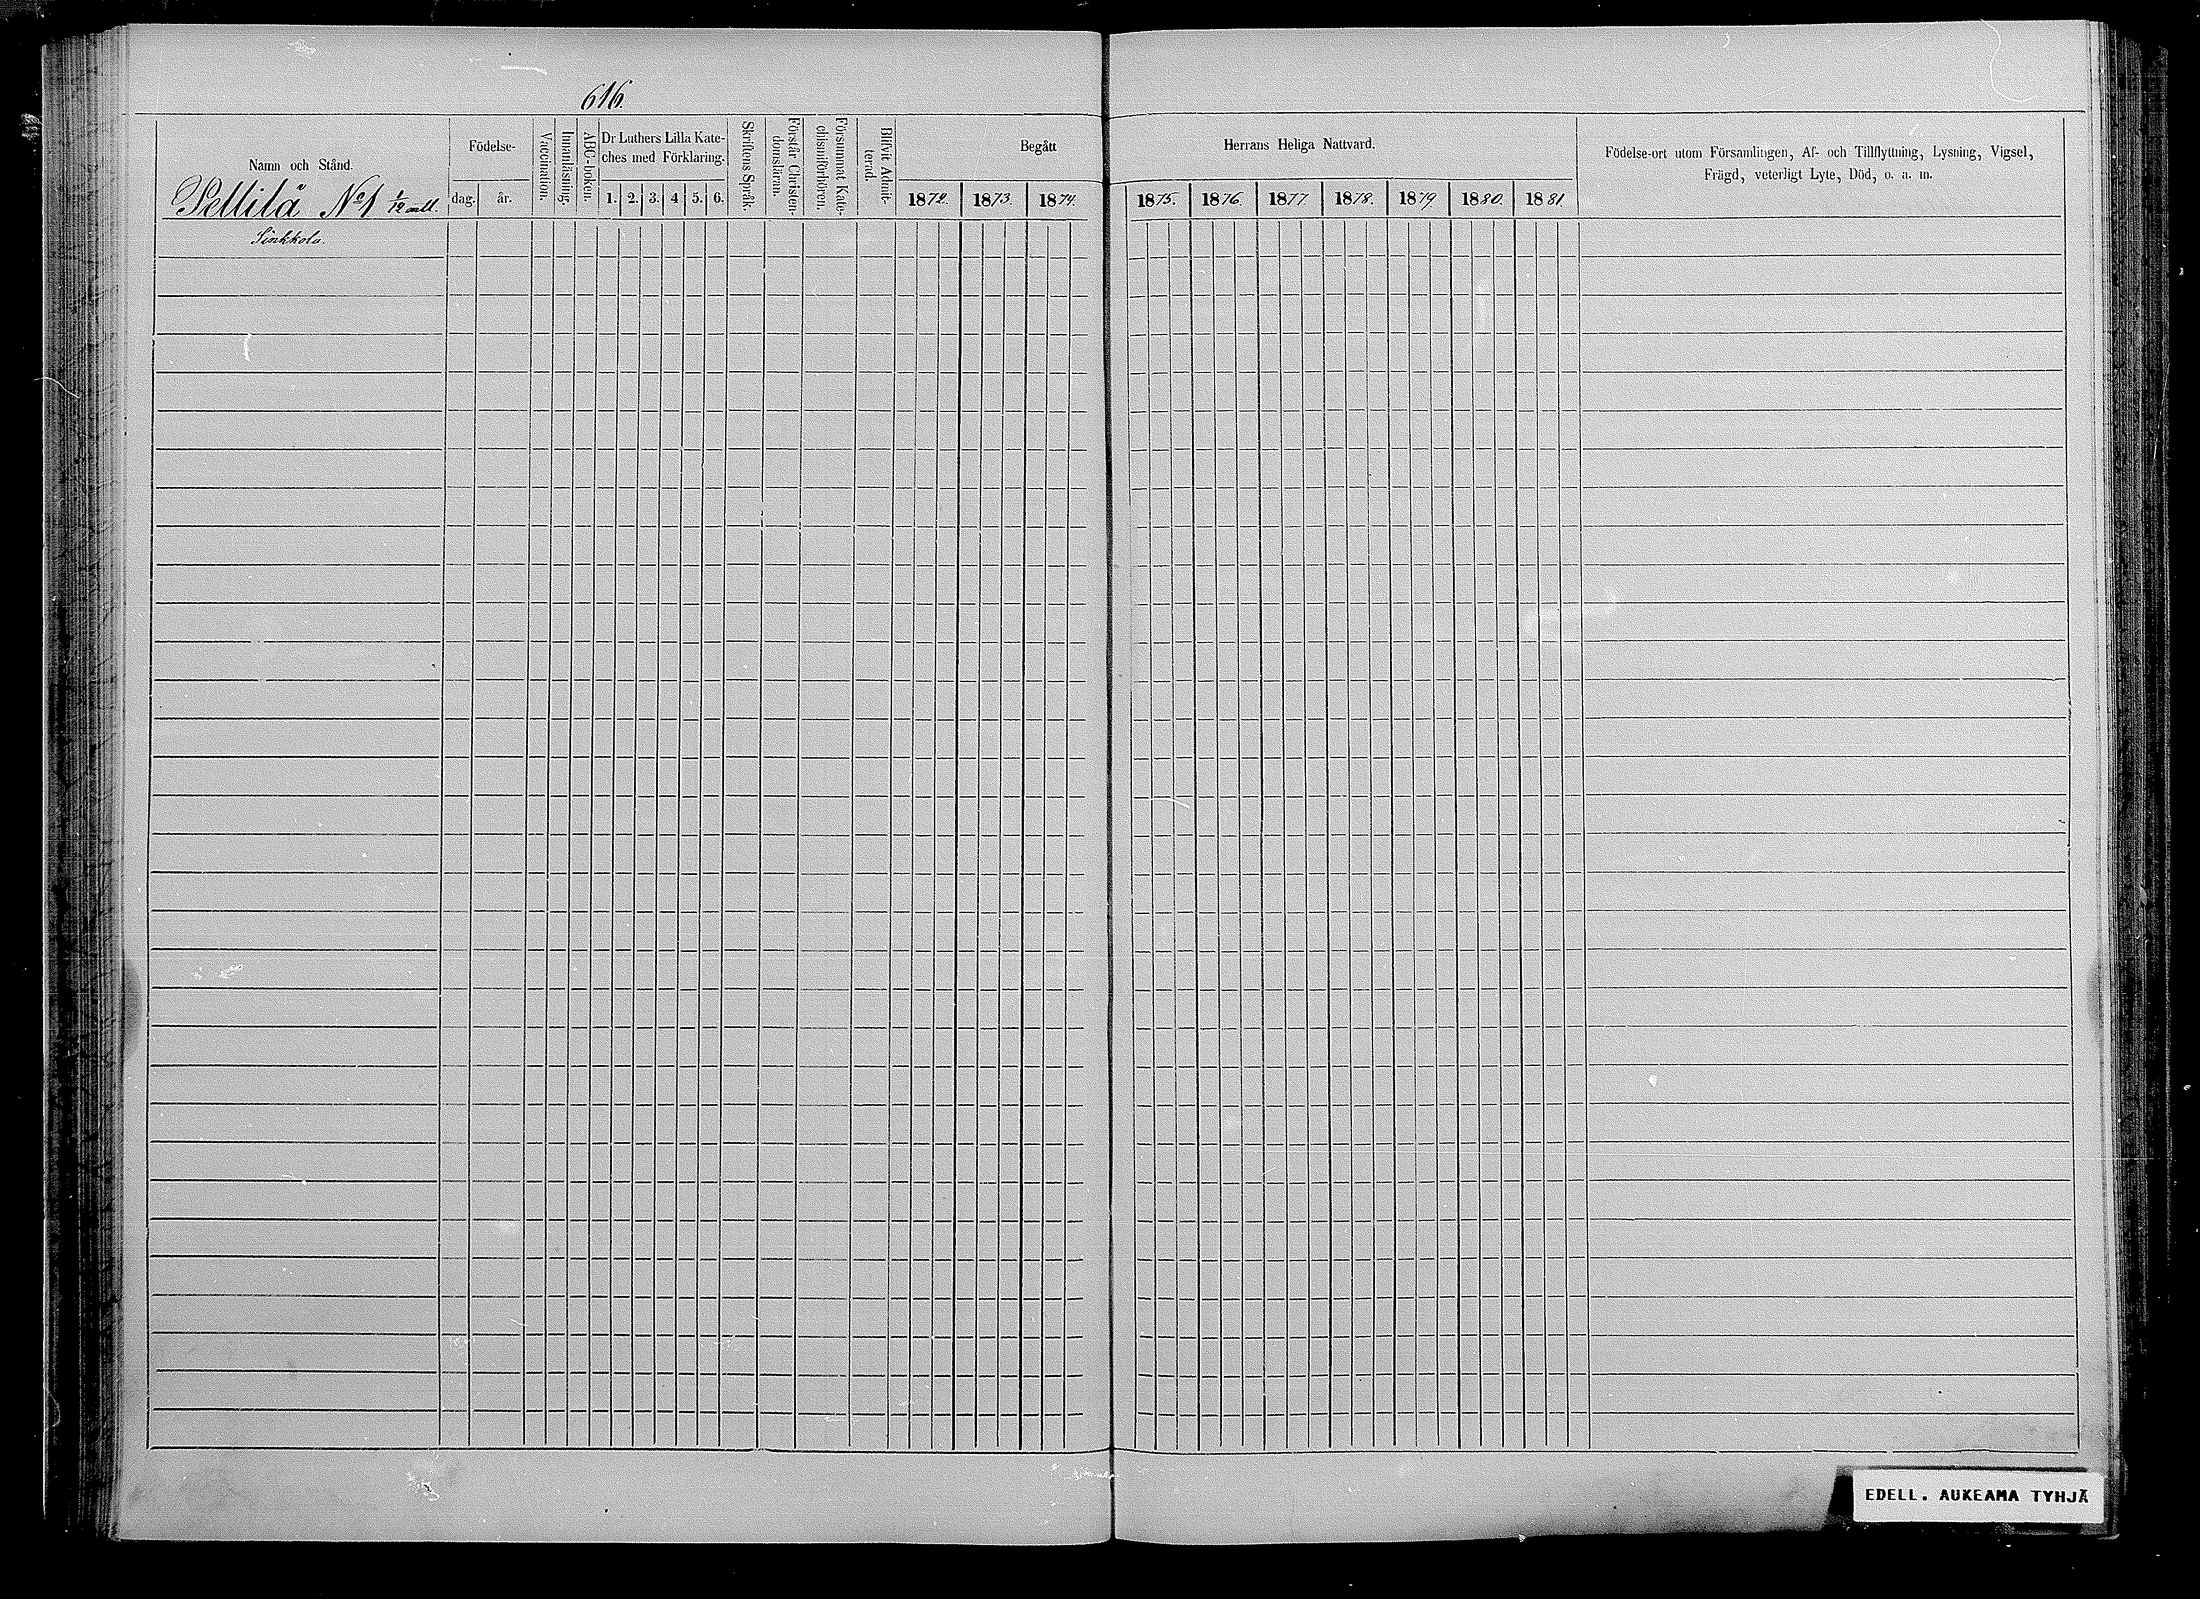 616.
Namn och Stånd.
Pellilä No 1 1/12 mtl.
Sinkkola.
Födelse-
dag. år.
Vaccination.
Innanläsning.
ABC-boken.
Dr Luthers Lilla Kate-
ches med Förklaring.
1. 2. 3. 4 5. 6.
Skriftens Språk.
Förstår Christen-
domsläran.
Försummat Kate-
chismiförhören.
Blifvit Admit-
terad.
Begått
1872. 1873. 1874.
Herrans Heliga Nattvard.
1875. 1876. 1877. 1878. 1879 1880. 1881.
Födelse-ort utom Församlingen, Af- och Tillflyttning, Lysning, Vigsel,
Frägd, veterligt Lyte, Död, o. a. m.
EDELL. AUKEAMA TYHJÄ